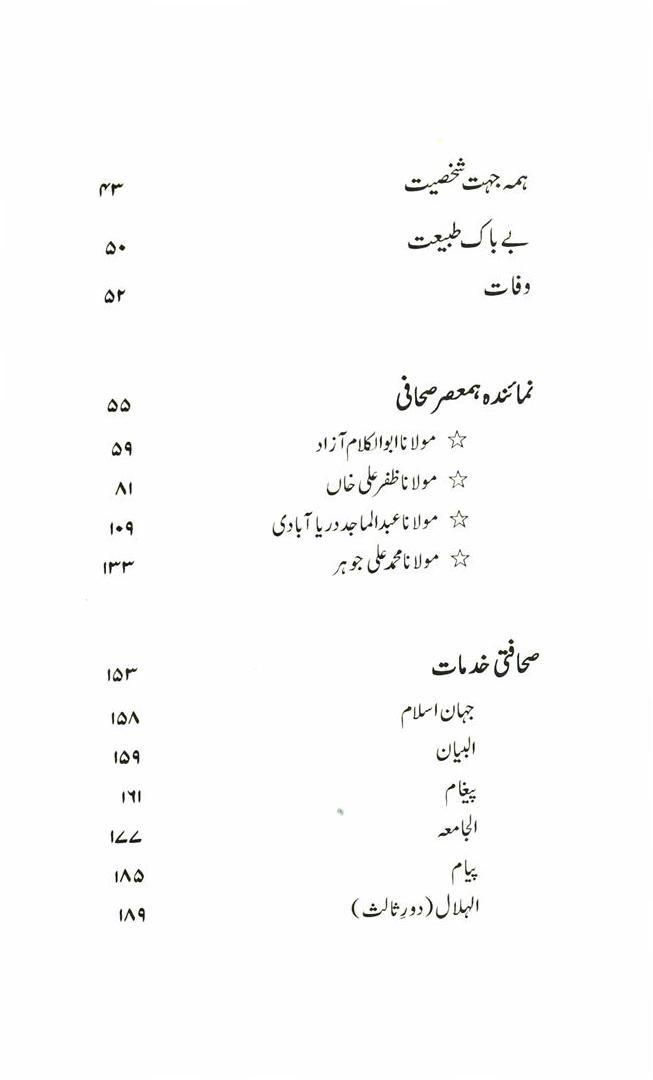 ہمہ جہت شخصیت ۴۳
بے باک طبیعت ۵۰
وفات ۵۲
نمائندہ ہمعصر صحافی ۵۵
☆ مولانا ابوالکلام آزاد ۵۹
☆ مولانا ظفر علی خاں ۸۱
☆ مولانا عبدالماجد دریا آبادی ۱۰۹
☆ مولانا محمد علی جوہر ۱۳۳
صحافتی خدمات ۱۵۳
جہان اسلام ۱۵۸
البیان ۱۵۹
پیغام ۱۶۱
الجامعہ ۱۷۷
پیام ۱۸۵
الہلال (دورِ ثالث) ۱۸۹